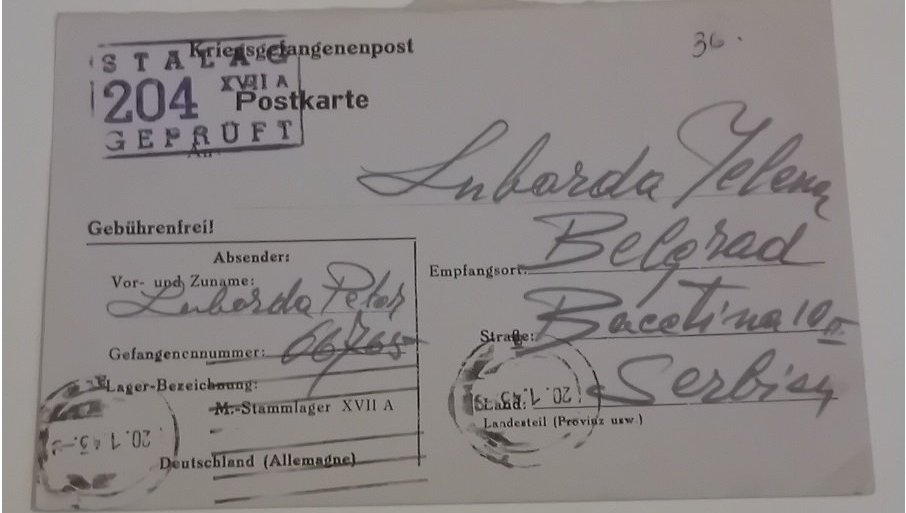 36.
Kriegsgefangenenpost
STALAG
XVII A
204
GEPRÜFT
Postkarte
An
Luborda Jelena
Gebührenfrei!
Absender:
Vor- und Zuname:
Luborda Petar
Empfangsort: Belgrad
Straße: Bacetina 10
Gefangenennummer: 66765
Lager-Bezeichnung:
M.-Stammlager XVII A
Land: Serbien
Landesteil (Provinz usw.)
20.1.43.
20.1.43.
Deutschland (Allemagne)